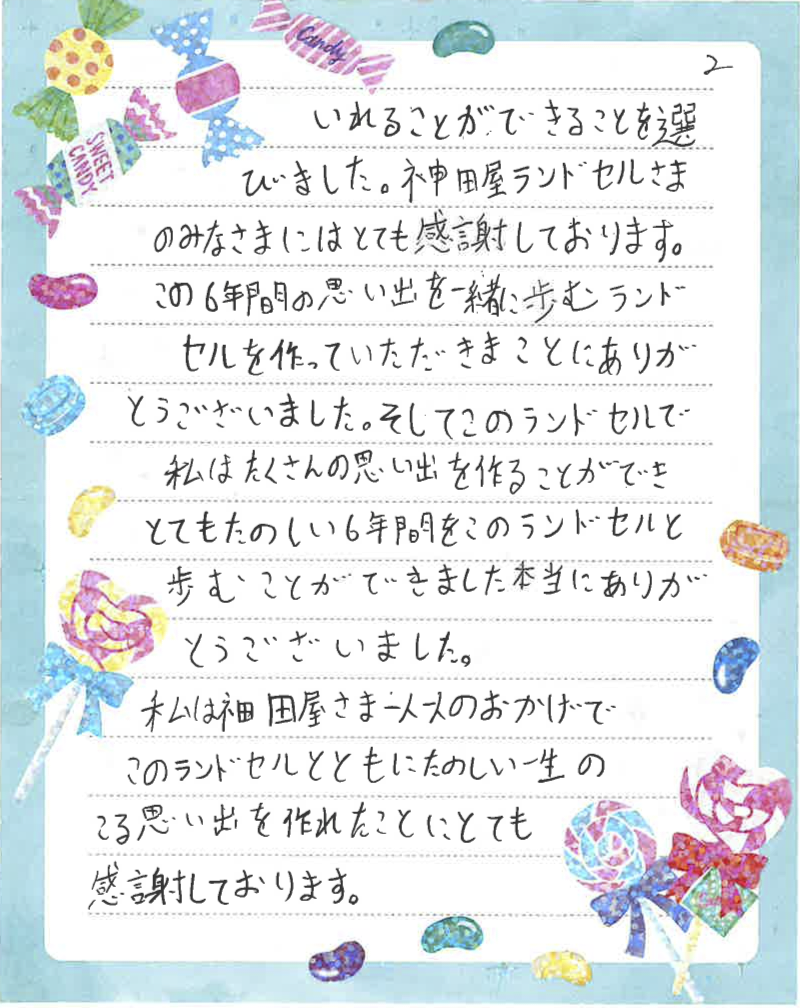 Candy
SWEET
CANDY
2
いれることができることを選
びました。神田屋ランドセルさま
のみなさまにはとても感謝しております。
この6年間の思い出を一緒に歩むランド
セルを作っていただきまことにありが
とうございました。そしてこのランドセルで
私はたくさんの思い出を作ることができ
とてもたのしい6年間をこのランドセルと
歩むことができました本当にありが
とうございました。
私は神田屋さま一人一人のおかげで
このランドセルとともにたのしい一生の
こる思い出を作れたことにとても
感謝しております。